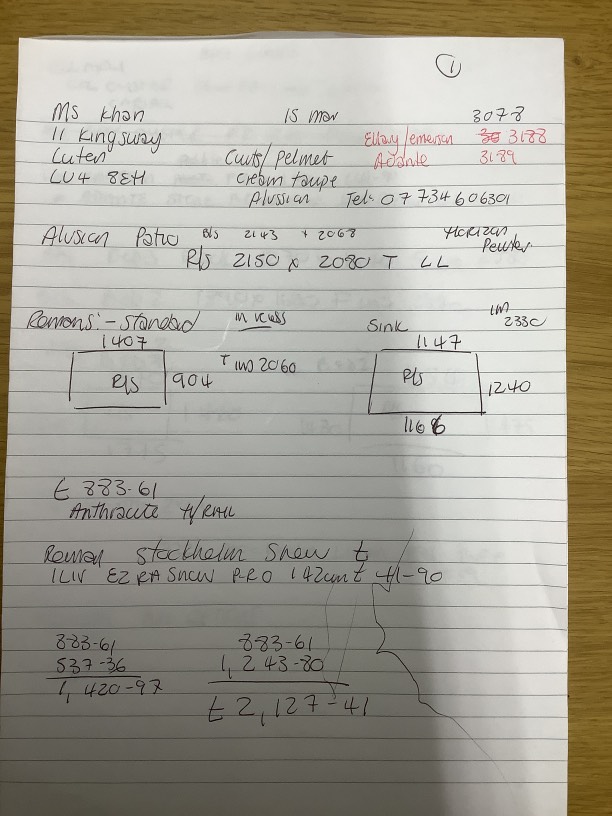 1
Ms Khan 15 mar 3078
11 Kingsway Ellary/emerson 3188
Luten Curts/Pelmet Adante 3189
LU4 8EH Cream taupe
Alussian Tel: 07734606301
Alusian Patio B/s 2143 x 2068 Horizan
R/s 2150 x 2080 T LL Pewter
Romans:- Standard in recess Sink im 2330
1407 1147
R/s 904 T im 2060 R/s 1240
1166
£ 883-61
Anthracite H/RAIL
Roman Stockholm Snow £
ILIV EZRA SNOW PRO 142cm £ 41-90
883-61 883-61
537-36 1,243-80
1,420-97 £2,127-41